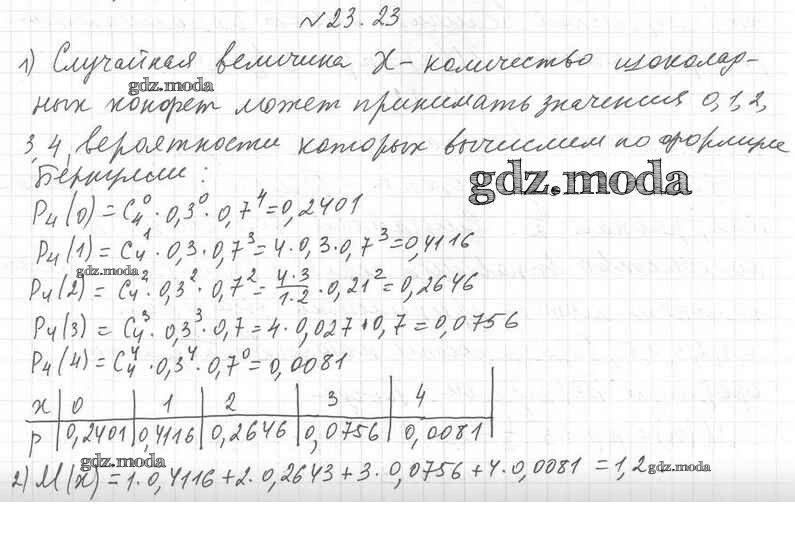 №23.23
1) Случайная величина X - количество шоколад-
gdz.moda
ных конфет может принимать значения 0, 1, 2,
3, 4, вероятности которых вычислим по формуле
Бернулли:
gdz.moda
P₄(0) = C₄⁰ · 0,3⁰ · 0,7⁴ = 0,2401
P₄(1) = C₄¹ · 0,3 · 0,7³ = 4 · 0,3 · 0,7³ = 0,4116
gdz.moda
P₄(2) = C₄² · 0,3² · 0,7² = 4·3/1·2 · 0,21² = 0,2646
P₄(3) = C₄³ · 0,3³ · 0,7 = 4 · 0,027 · 0,7 = 0,0756
P₄(4) = C₄⁴ · 0,3⁴ · 0,7⁰ = 0,0081
x 0 1 2 3 4
P 0,2401 0,4116 0,2646 0,0756 0,0081
gdz.moda
2) M(x) = 1 · 0,4116 + 2 · 0,2643 + 3 · 0,0756 + 4 · 0,0081 = 1,2 gdz.moda